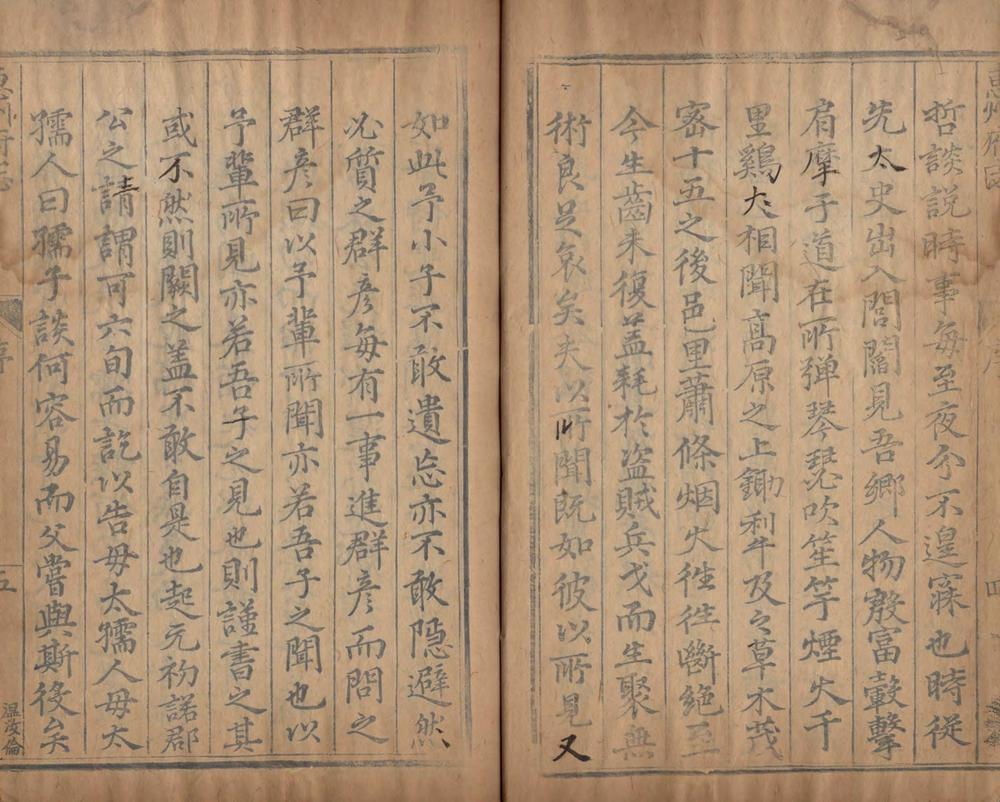 哲談說時事每至夜分不遑寐也時從
先太史出入閭閻見吾鄉人物殷富轂擊
肩摩于道在所彈琴瑟吹笙竽煙火千
里鷄犬相聞高原之上鋤利牛及之草木茂
密十五之後邑里蕭條烟火徃徃斷絕至
今生齒未復盖耗於盗賊兵戈而生聚無
術良足哀矣夫以所聞既如彼以所見又
如此予小子不敢遺忘亦不敢隠避然
必質之群彦每有一事進群彦而問之
群彦曰以予輩所聞亦若吾子之聞也以
予輩所見亦若吾子之見也則謹書之其
或不然則闕之盖不敢自是也起元初諾郡
公之請謂可六旬而訖以告母太孺人母太
孺人曰孺子談何容易而父嘗與斯役矣
序
五
温汝倫